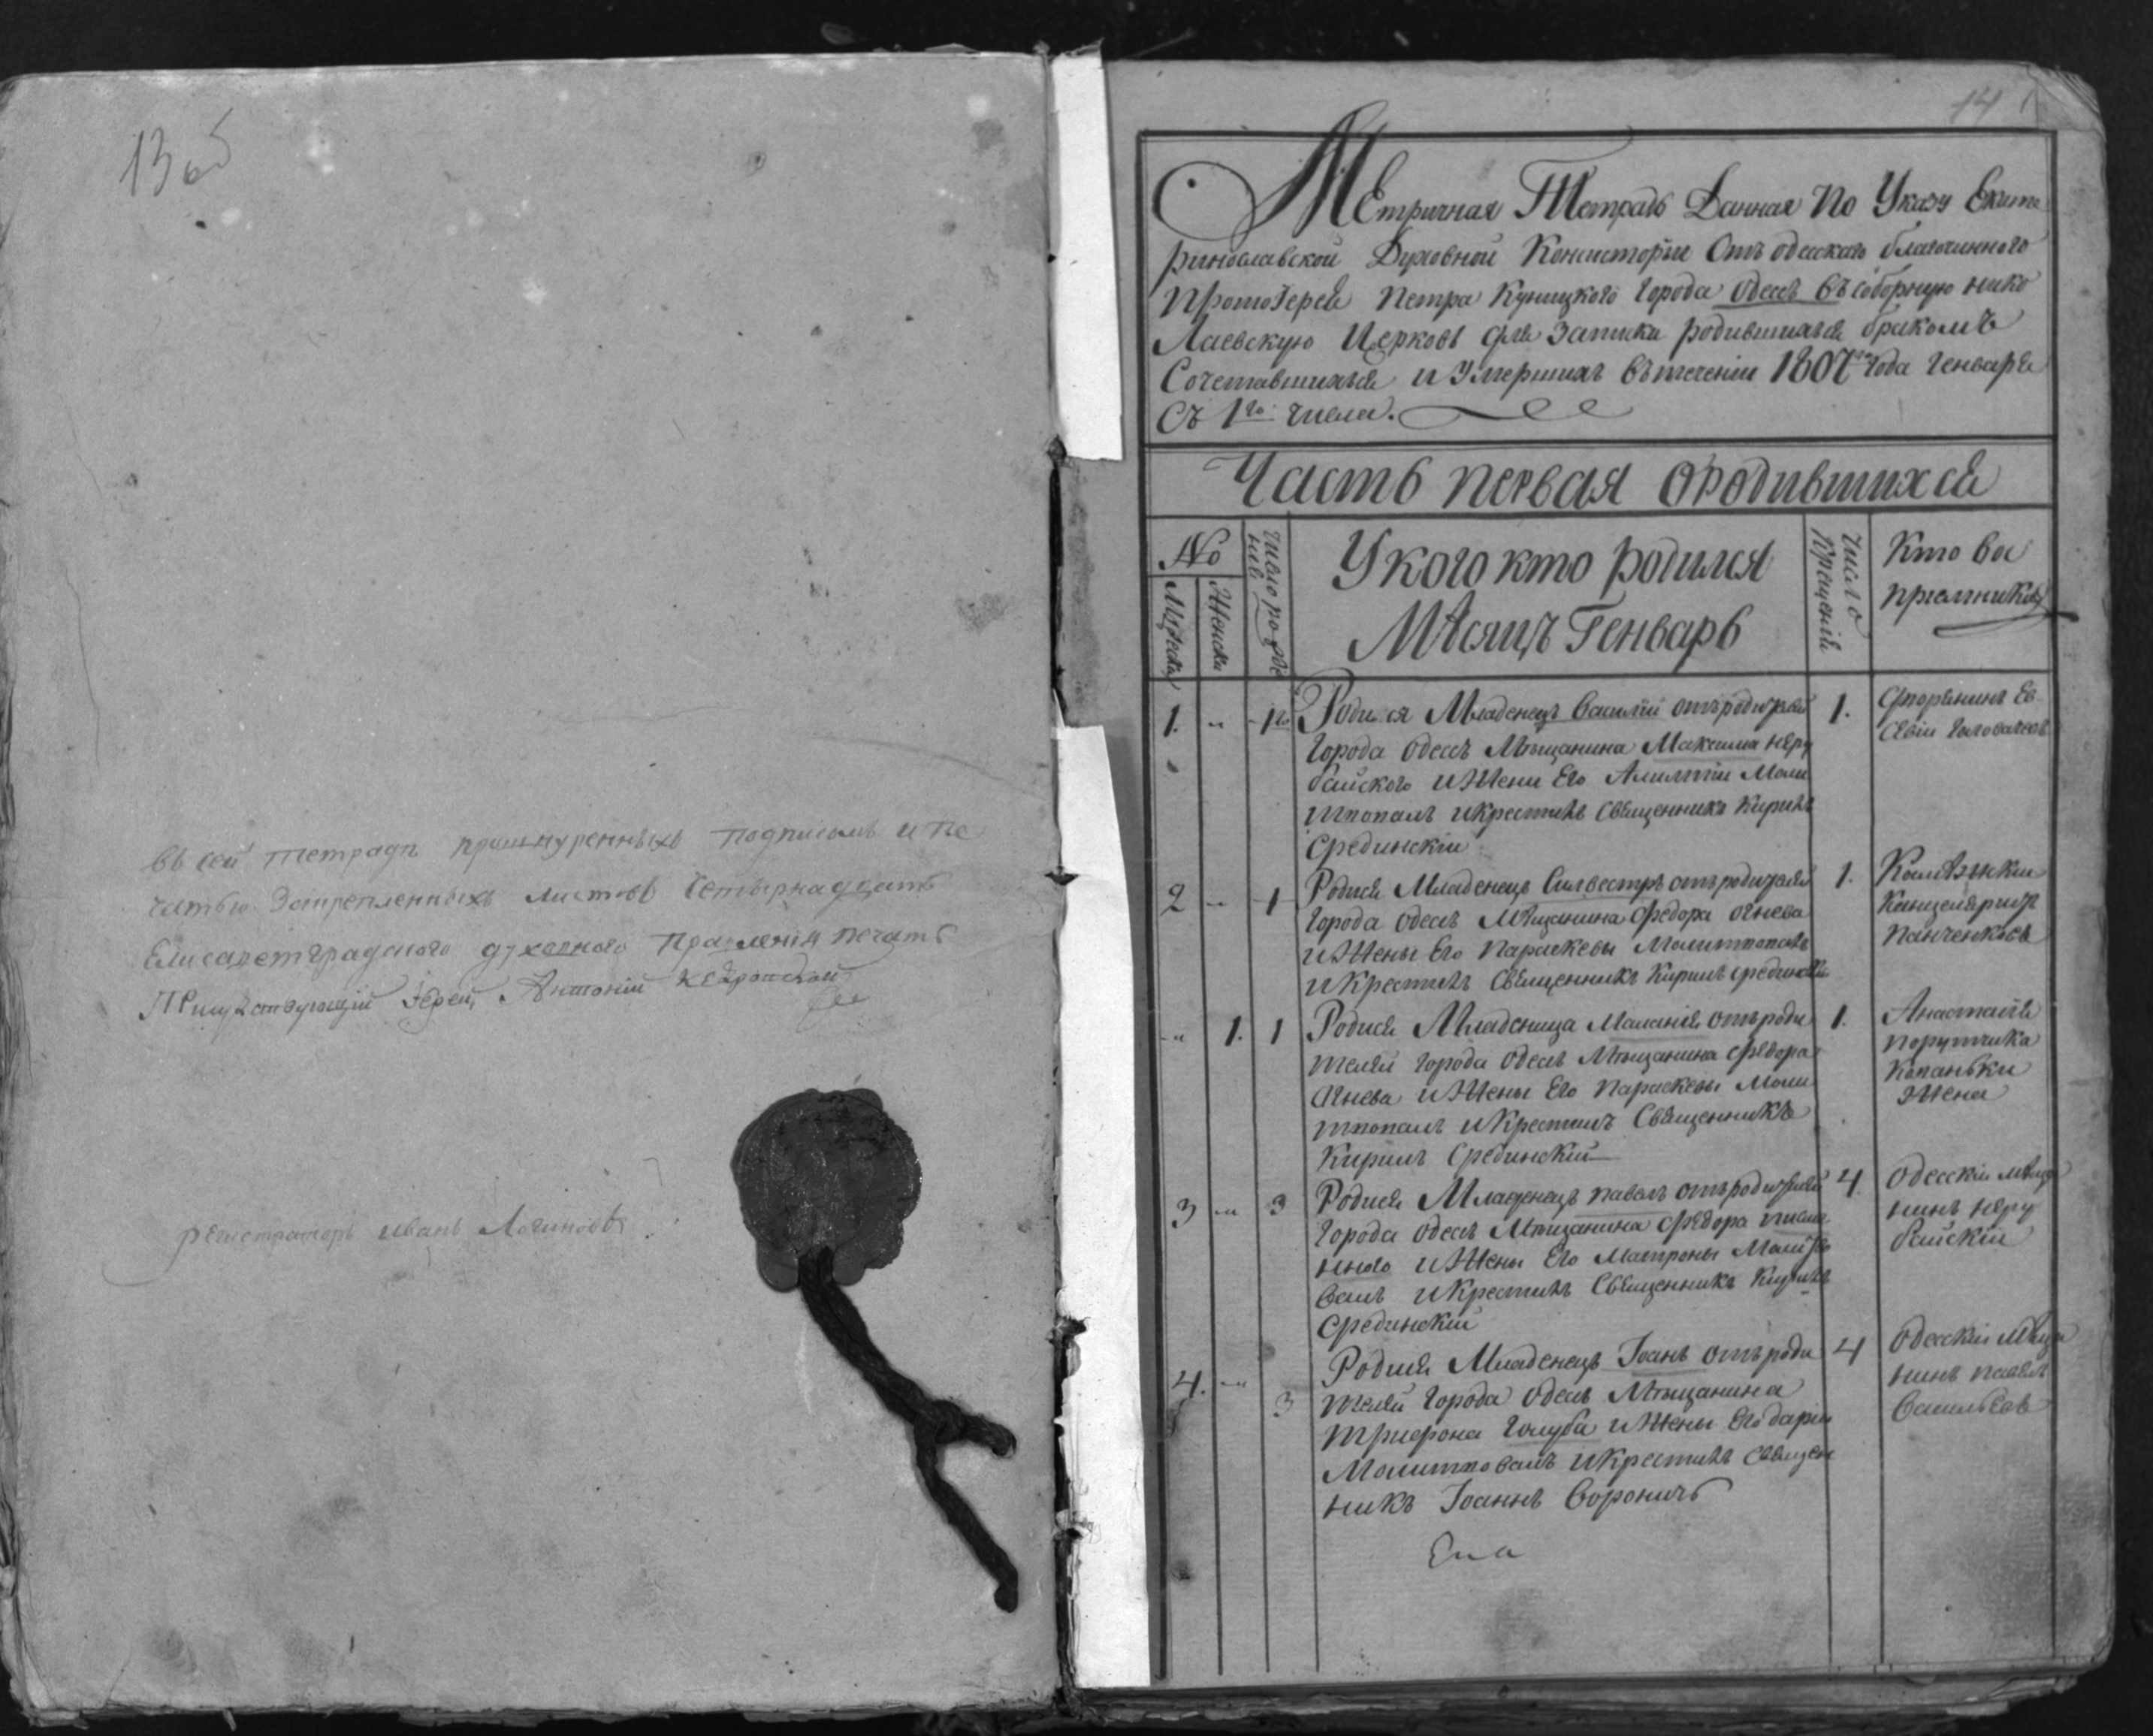 13 об
въ сей тетрадѣ прошнуренныхъ подписомъ и пе
чатью закрепленныхъ листовъ четырнадцать
Елисаветградского духовного правленія печать
Присудствующій Іерей Антоній
регистраторъ иванъ Логиновъ
14
Метричная Тетрадь Данная По Указу Екате
ринославской Духовной Консисторіи Отъ одескаго благочинного
ПротоІерея Петра Куницкого города Одесъ въ соборную нико
Лаевскую Церковь для Записки родившихъся бракомъ
Сочетавшихъся и Умершихъ въ теченіи 1807го года генваря
съ 1го числа.
Часть первая о родившихся
№
Мужеска
Женска
Число рожде
нив
У кого кто родился
Мѣсяцъ Генварь
Число
крещенія
Кто во
приемников
1. 1го Родился Младенецъ Василій отъ родителей 1.
города Одесъ Мѣщанина Максима Неру
байского и Жени Его Моли
твовалъ и крестилъ Священникъ Кирилъ
Срединскіи
Дворянинъ Ев
севіи Головачев
2 1 Родися Младенецъ Силвестръ отъ родителей 1.
города Одесъ Мѣщанина Федора Огнева
и Жены Его Параскевы Молитвовалъ
и Крестилъ Священникъ Кирилъ Срединскій
Канцеляристъ
Панченковъ
1. 1 Родися Младеница Маланія отъ роди 1.
телей города Одесъ Мѣщанина Федора
Огнева и Жены Его Параскевы Моли
твовалъ и Крестилъ Священникъ
Кирилъ Срединскій
Анастасія
порутчика
Капаньки
Жена
3 3 Родися Младенецъ павелъ отъ родителей 4.
города Одесъ Мѣщанина Федора
и Жены Его Матроны Молит
валъ и Крестилъ Священникъ Кирилъ
Срединскіи
Одесскіи мѣща
нинъ Неру
байскіи
4. 3 Родися Младенецъ Іоанъ отъ роди 4
телей города Одесъ Мѣщанина
Трифона Голуба и Жены Его дарiи
Молитвовалъ и Крестилъ Священ
никъ Іоаннъ Вороничъ
Одесскіи Мѣща
нинъ павелъ
Васильевъ